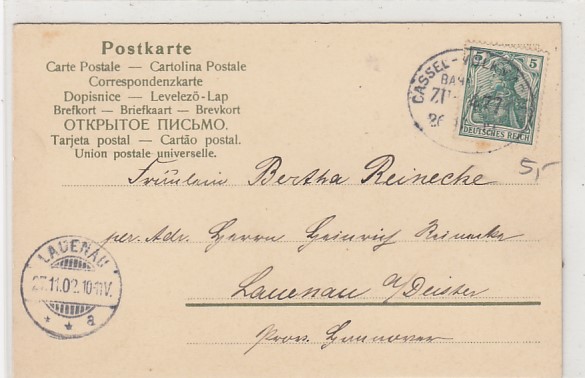 Postkarte
Carte Postale — Cartolina Postale
Correspondenzkarte
Dopisnice — Levelező-Lap
Brefkort — Briefkaart — Brevkort
ОТКРЫТОЕ ПИСЬМО.
Tarjeta postal — Cartão postal.
Union postale universelle.
CASSEL-
BAH
ZUG 477
26
5
DEUTSCHES REICH
5,-
Fräulein Bertha Reinecke
per. Adr. Herrn Heinrich Reinecke
Lauenau a/Deister
Prov. Hannover
LAUENAU
27.11.02.10-11V.
* * a